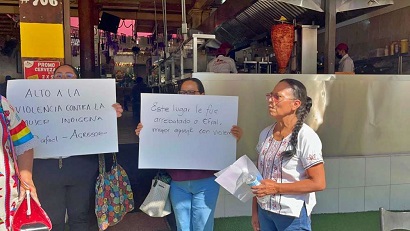 #706
PROMO
CERVEZA
ALTO A LA
VIOLENCIA CONTRA LA
MUJER INDIGENA
Rafael - AGRESOR -
Este lugar le fue
arrebatado a Efrai,
mujer aguali con violen